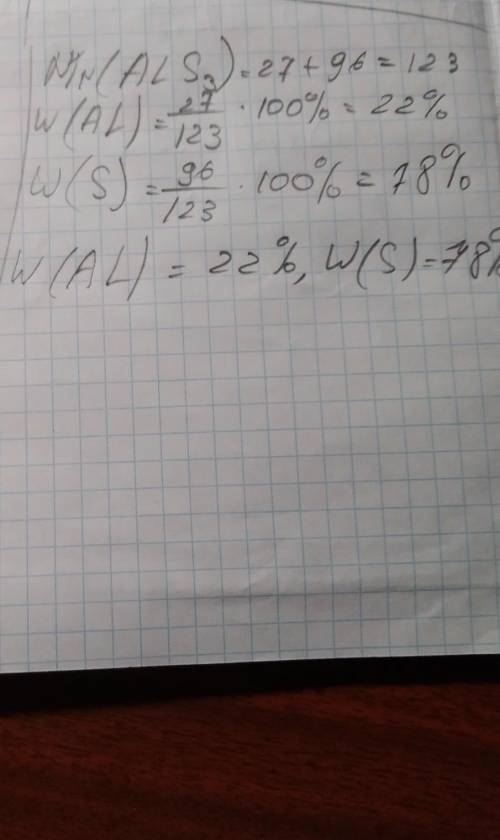 Mr(ALS₃)=27+96=123
W(AL)=27/123·100%=22%
W(S)=96/123·100%=78%
W(AL)=22%, W(S)=78%